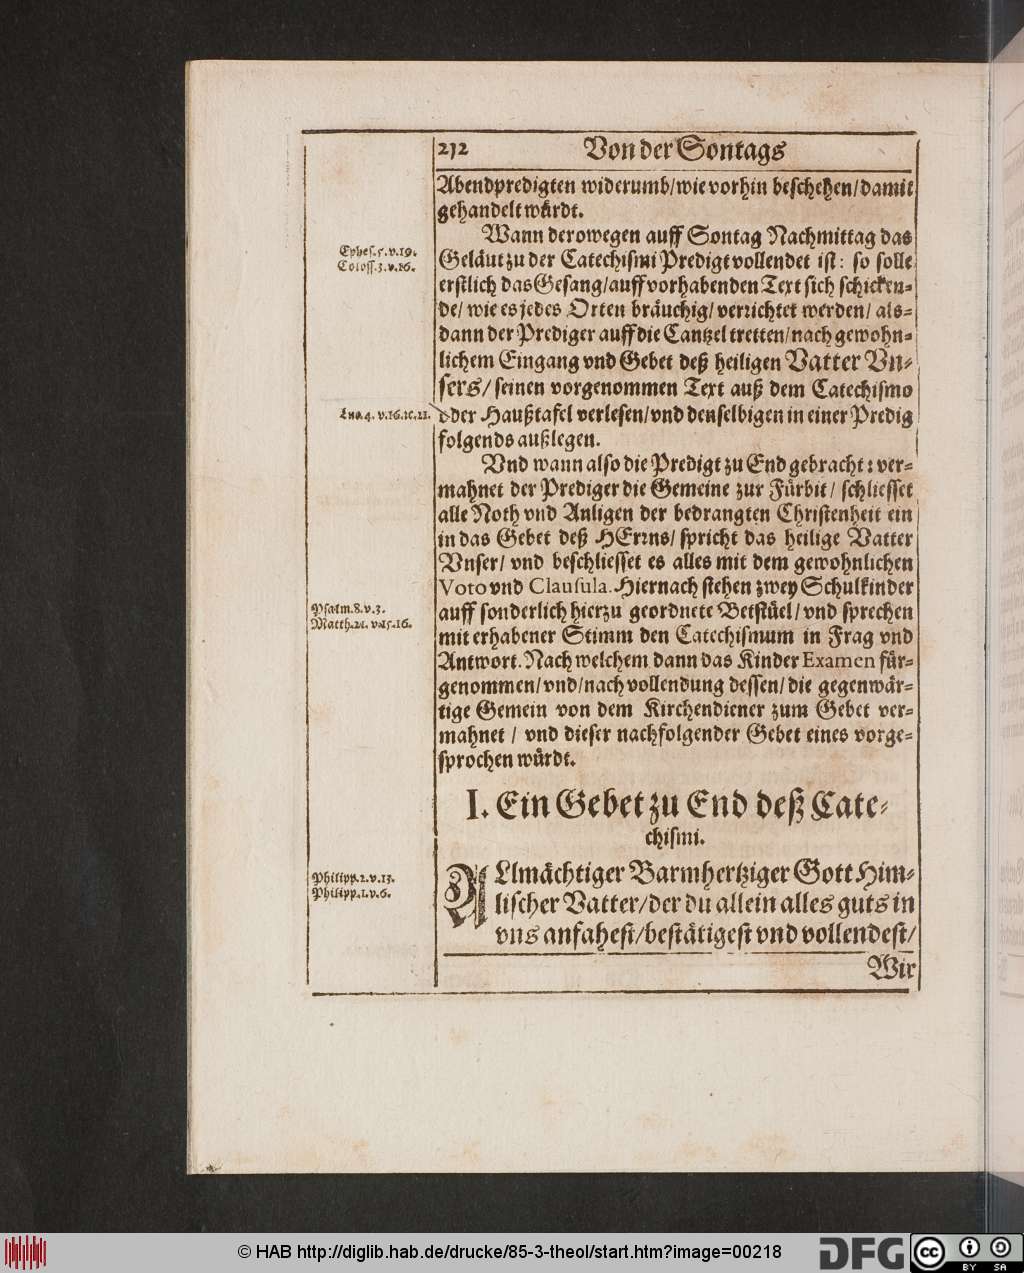 212 Von der Sontags
Abendpredigten widerumb/wie vorhin beschehen/damit
gehandelt würdt.
Wann derowegen auff Sontag Nachmittag das
Ephes.5.v.19.
Geläut zu der Catechismi Predigt vollendet ist: so solle
Coloss.3.v.16.
erstlich das Gesang/auff vorhabenden Text sich schicken-
de/ wie es jedes Orten bräuchig/ verrichtet werden/ als-
dann der Prediger auff die Cantzel tretten/nach gewohn-
lichem Eingang vnd Gebet deß heiligen Vatter Vn-
sers/ seinen vorgenommen Text auß dem Catechismo
Luc.4. v.16.20.21.
oder Haußtafel verlesen/vnd denselbigen in einer Predig
folgends außlegen.
Vnd wann also die Predigt zu End gebracht: ver-
mahnet der Prediger die Gemeine zur Fürbit/ schliesset
alle Noth vnd Anligen der bedrangten Christenheit ein
in das Gebet deß HErrns/ spricht das heilige Vatter
Vnser/ vnd beschliesset es alles mit dem gewohnlichen
Voto vnd Clausula. Hiernach stehen zwey Schulkinder
Psalm.8.v.3.
auff sonderlich hierzu geordnete Betstüel/ vnd sprechen
Matth.21. v.15.16.
mit erhabener Stimm den Catechismum in Frag vnd
Antwort. Nach welchem dann das Kinder Examen für-
genommen/ vnd/nach vollendung dessen/ die gegenwär-
tige Gemein von dem Kirchendiener zum Gebet ver-
mahnet / vnd dieser nachfolgender Gebet eines vorge-
sprochen würdt.
I. Ein Gebet zu End deß Cate-
chismi.
Philipp.2.v.13.
ALlmächtiger Barmhertziger Gott Him-
Philipp.1.v.6.
lischer Vatter/der du allein alles guts in
vns anfahest/bestätigest vnd vollendest/
Wir
© HAB http://diglib.hab.de/drucke/85-3-theol/start.htm?image=00218
DFG
cc
BY SA